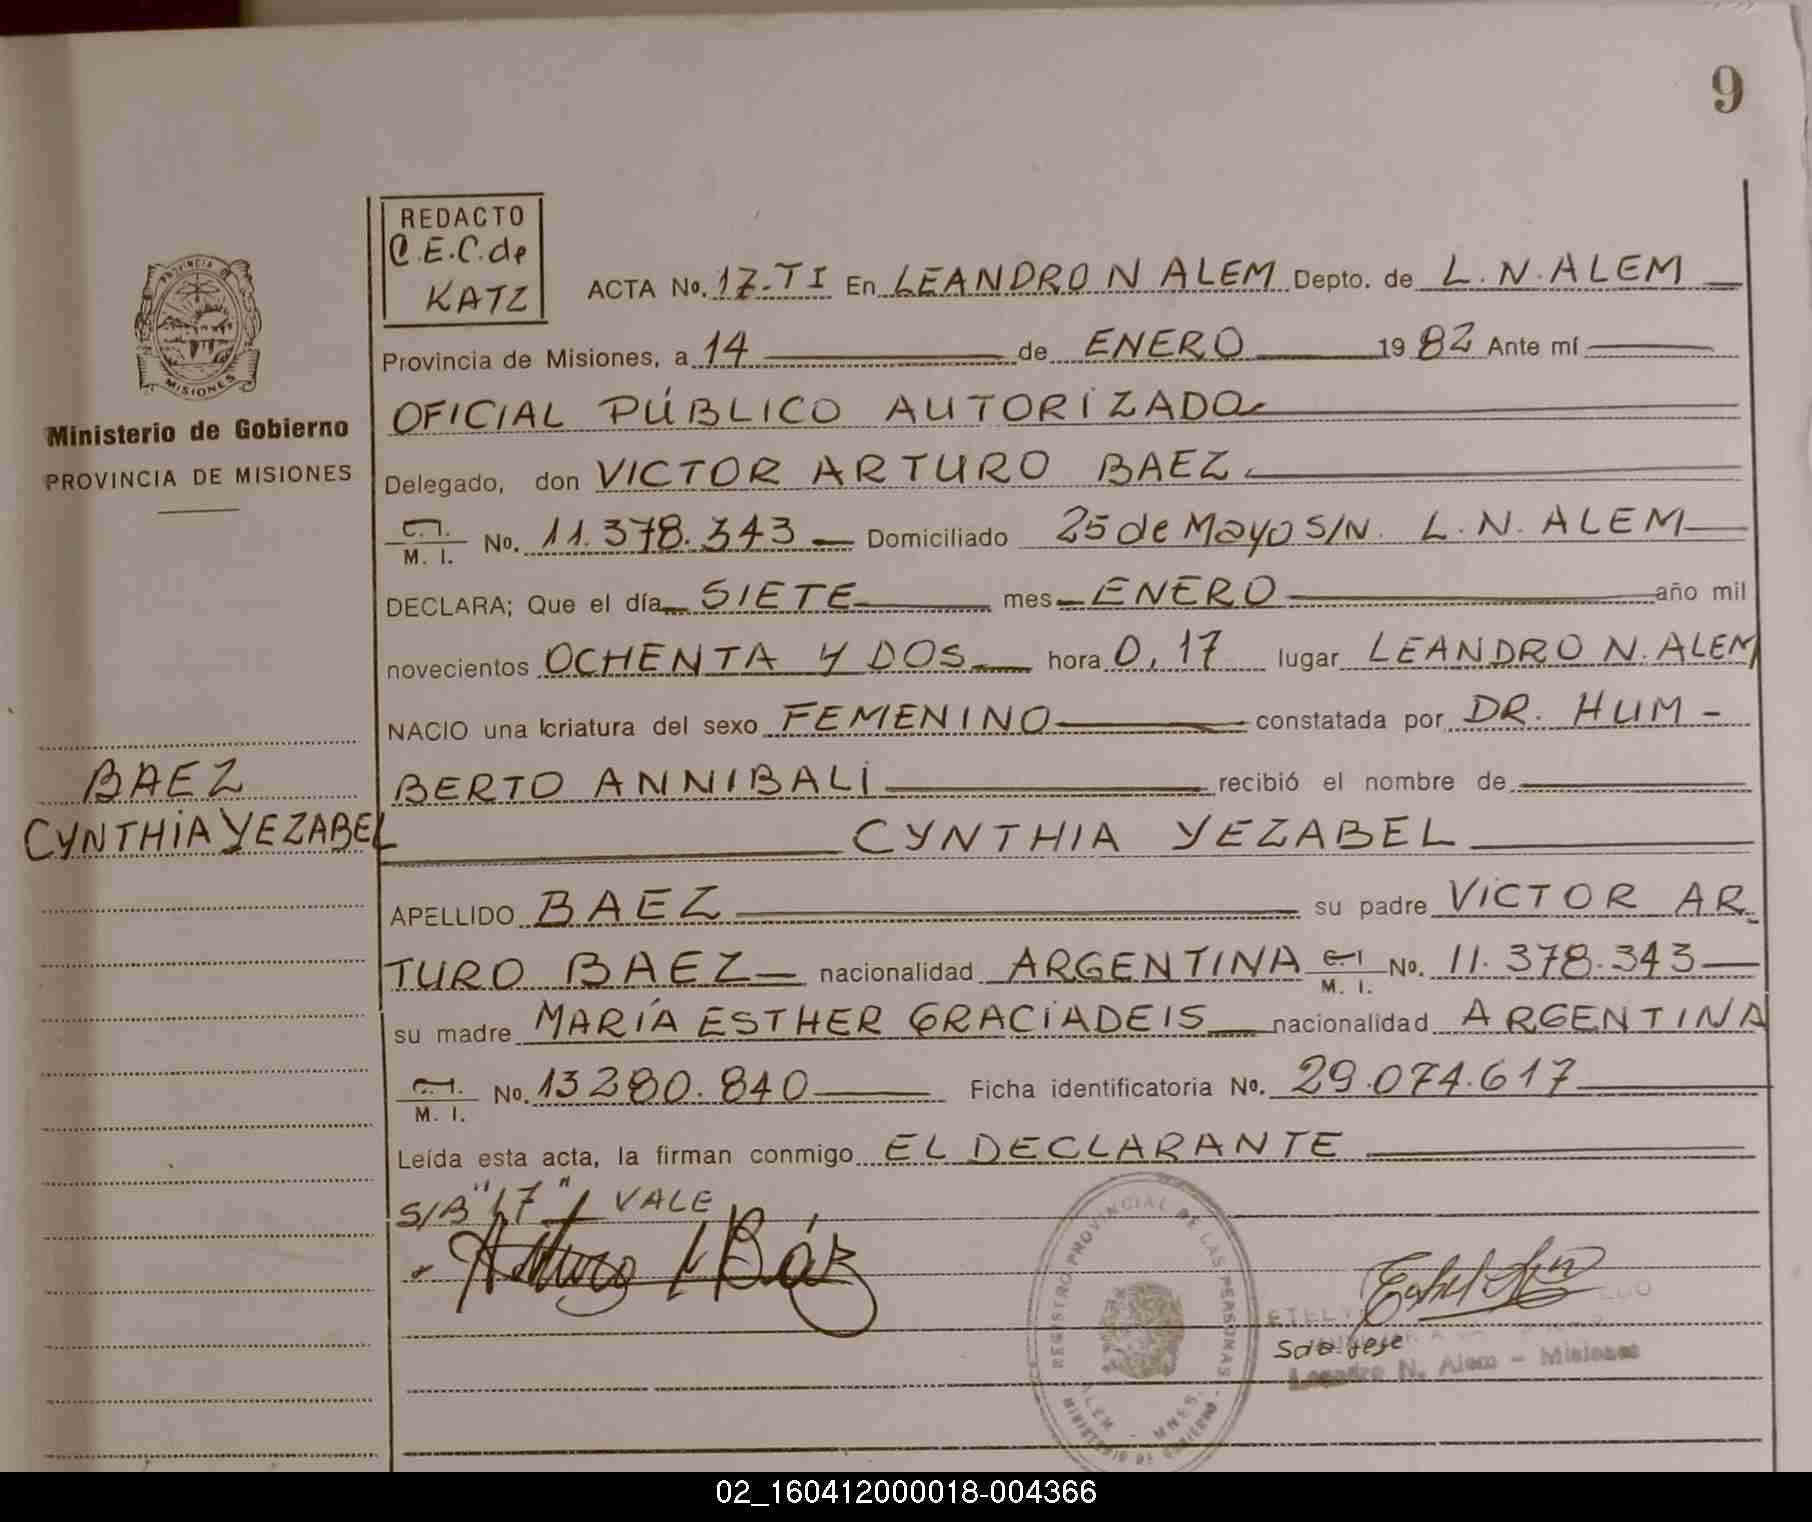 9
REDACTO
C.E.C. de
KATZ
ACTA No. 17-TI En LEANDRO N ALEM Depto. de L.N.ALEM
Provincia de Misiones, a 14 de ENERO 1982 Ante mí
OFICIAL PÚBLICO AUTORIZADO
Delegado, don VICTOR ARTURO BAEZ
C.I. M. I. No. 11.378.343 Domiciliado 25 de Mayo S/N. L.N. ALEM
DECLARA; Que el día SIETE mes ENERO año mil
novecientos OCHENTA Y DOS hora 0,17 lugar LEANDRO N. ALEM
NACIO una criatura del sexo FEMENINO constatada por DR. HUM-
BERTO ANNIBALI recibió el nombre de
CYNTHIA YEZABEL
APELLIDO BAEZ su padre VICTOR AR
TURO BAEZ nacionalidad ARGENTINA C.I. M. I. No. 11.378.343
su madre MARÍA ESTHER GRACIADEIS nacionalidad ARGENTINA
C.I. M. I. No. 13280.840 Ficha identificatoria No. 29.074.617
Leída esta acta, la firman conmigo EL DECLARANTE
S/B "17" VALE
Arturo V Báez
PROVINCIA DE
MISIONES
Ministerio de Gobierno
PROVINCIA DE MISIONES
BAEZ
CYNTHIA YEZABEL
REGISTRO PROVINCIAL DE LAS PERSONAS
ALEM - MNES.
MINISTERIO DE GOBIERNO
Leandro N. Alem - Misiones
02_160412000018-004366